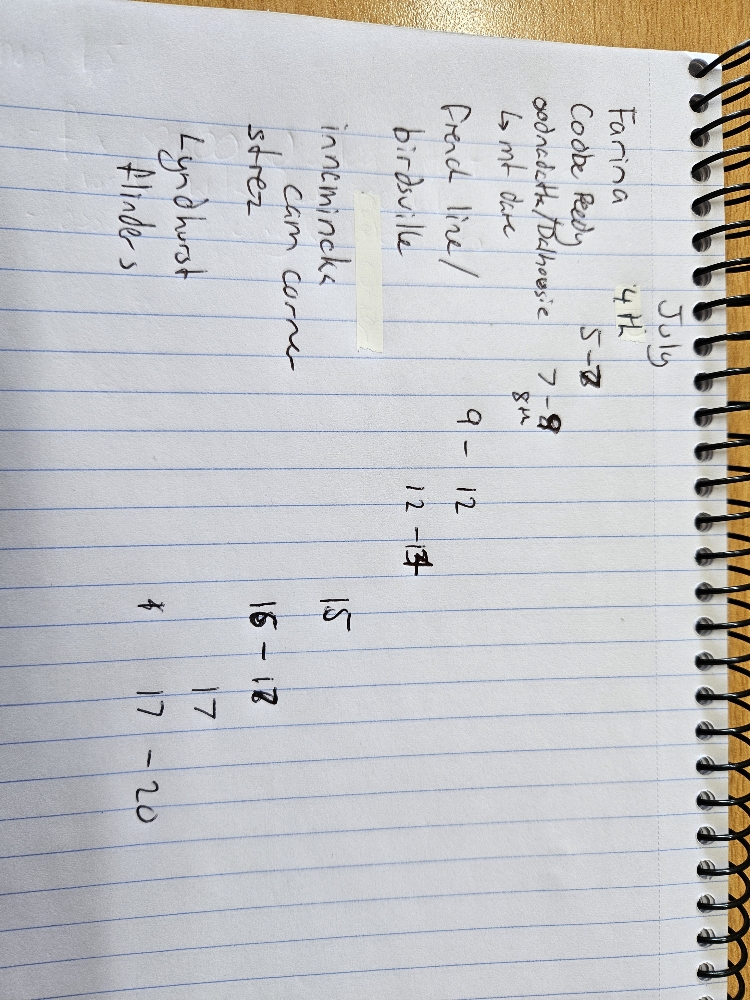 July
Farina 4th
Coobe Peedy 5 -
oodnadatta/Dalhousie 7 -
↳ mt dare 8th
french line/ 9 - 12
birdsville 12 -
innamincka 15
cam corner
strez 16 - 18
Lyndhurst 17
flinders * 17 - 20